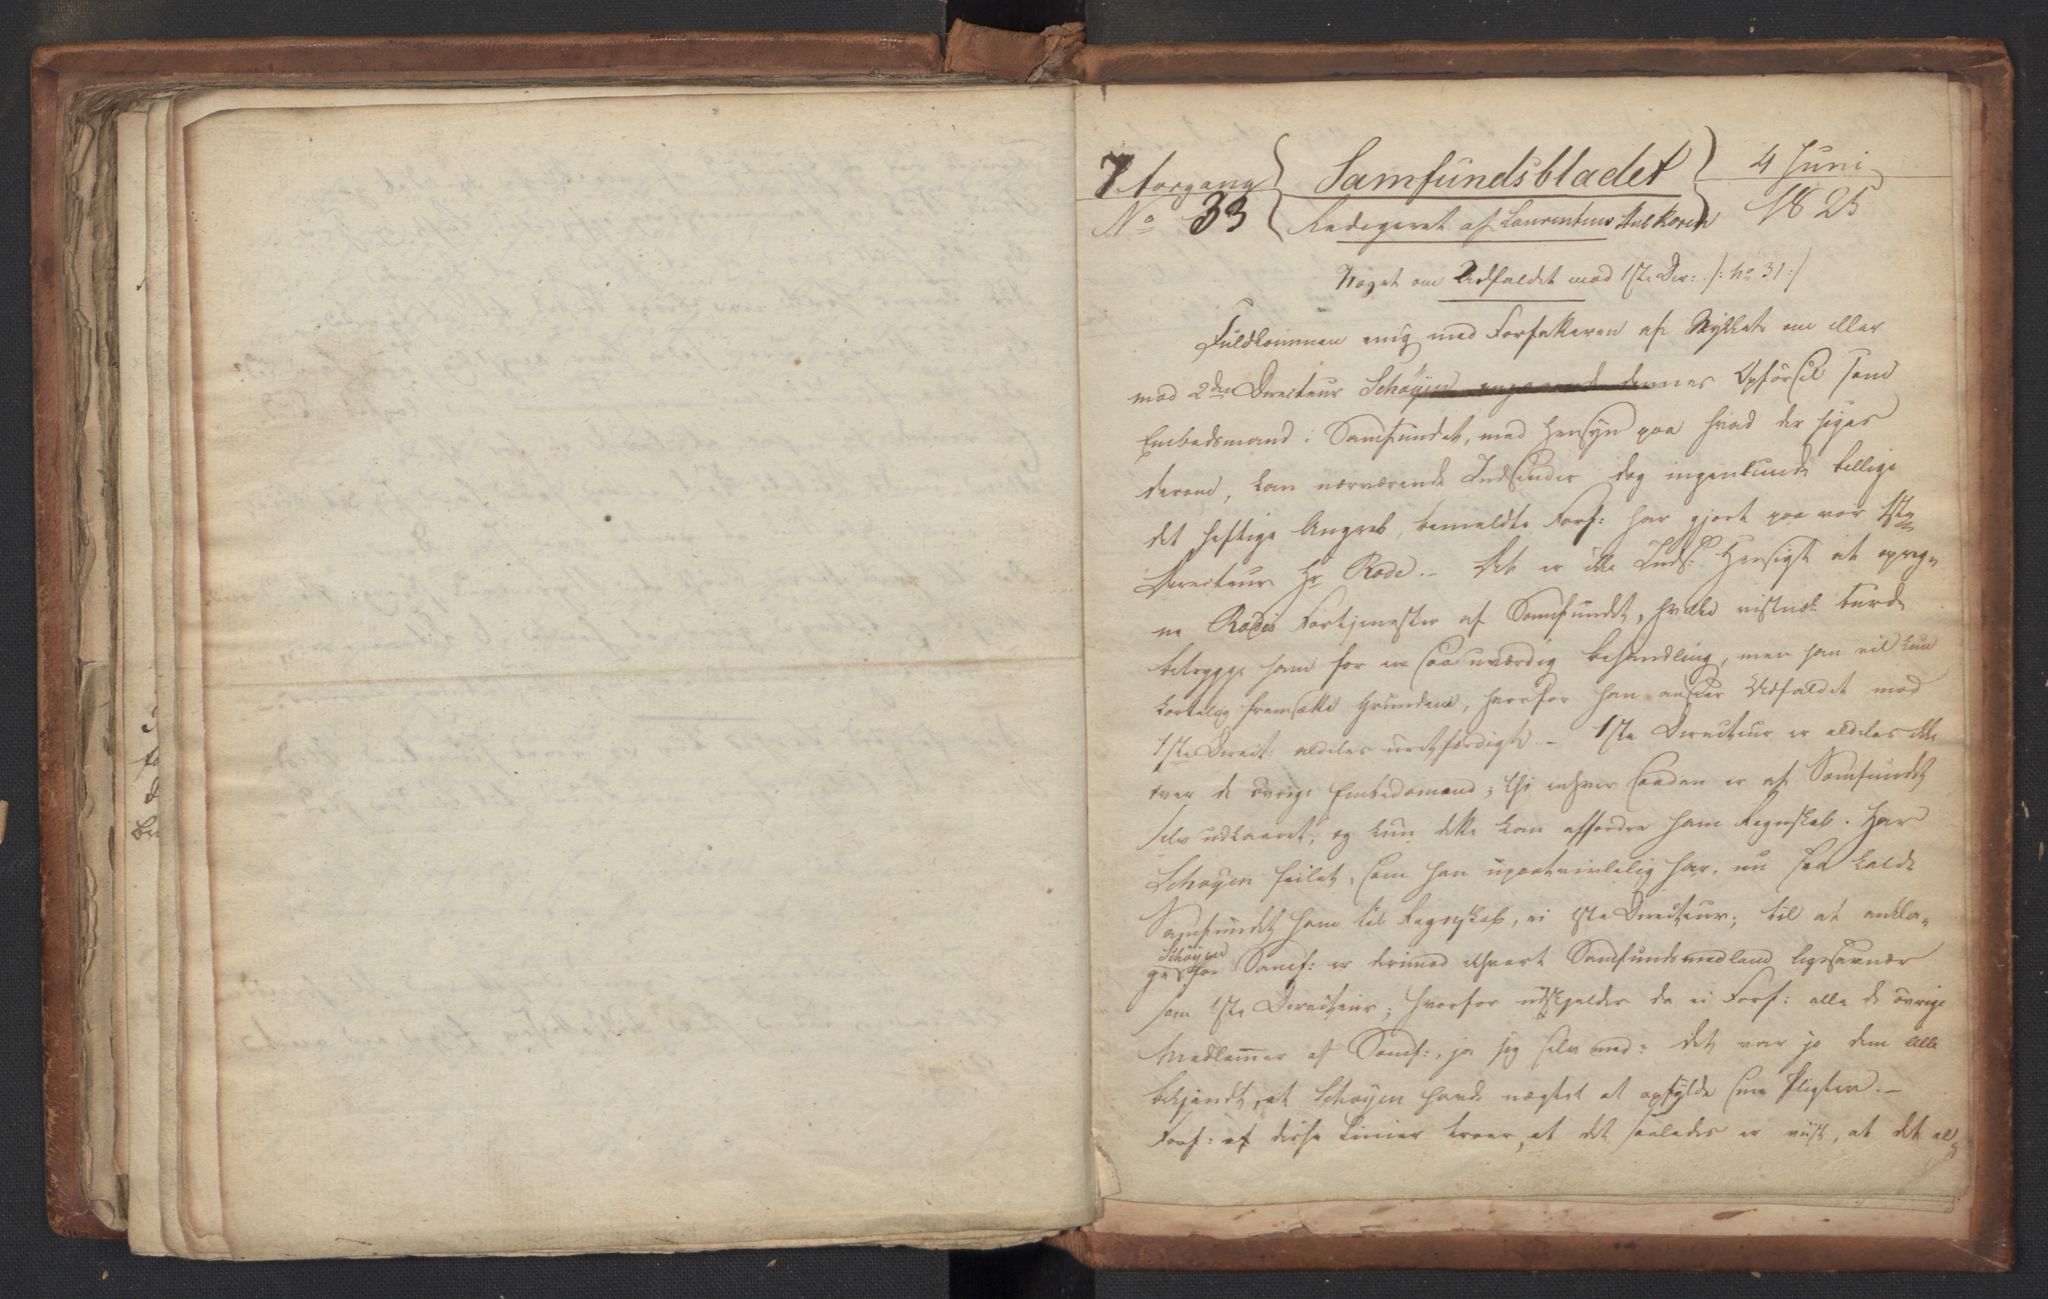 7 Aargang
No 33
Samfundsbladet
Redigeret af Laurentius
4 Juni
1825
Noget om Udfaldet mod 1ste Dir: /: no 31 :/
Fuldkommen enig med Forfatteren af Stykket om eller
mod 2den Directeur Schøyen angaaende dennes Opførsel som
Embedsmand i Samfundet, med Hensyn paa hvad der siges
derom, kan nærværende Indsender dog ingenlunde billige
det heftige Angreb, bemeldte Forf: har gjort paa vor 1ste
Directeur Hr Rode. – Det er ikke Inds: Hensigt at opreg-
ne Rodes Fortjenester af Samfundet, hvilke vistnok burde
betrygge ham for en saa uværdig Behandling, men han vil kun
kortelig fremsætte Grundene, hvorfor han anseer Udfaldet mod
1ste Direct: aldeles uretfærdigt. – 1ste Directeur er aldeles ikke
over de øvrige Embedsmænd; thi enhver saadan er af Samfundet
selv udkaaret, og kun dette kan affordre ham Regnskab. Har
Schøyen feilet, som han upaatvivlelig har, nu saa kalde
Samfundet ham til Regnskab, ei 1ste Directeur; til at ankla-
ge Schøyen for Samf: er derimod ethvert Samfundsmedlem ligesaa nær
som 1ste Directeur; hvorfor udskjelder da ei Forf: alle de øvrige
Medlemmer af Samf:, ja sig selv med: det var jo dem alle
bekjendt, at Schøyen havde nægtet at opfylde sine Pligter. –
Forf: af disse Linier troer, at det saaledes er viist, at det al-